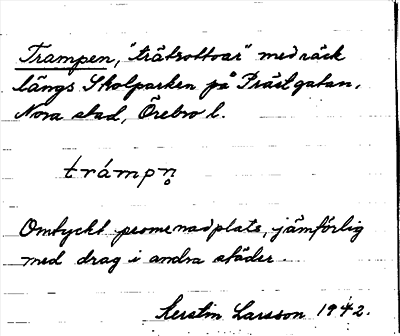 Trampen, "trätrottoar" med räck
längs Skolparken på Prästgatan,
Nora stad, Örebro l.
trámpn̥
Omtyckt promenadplats, jämförlig
med drag i andra städer.
Kerstin Larsson 1942.